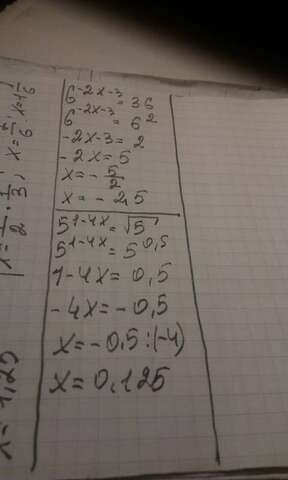 6^-2x-3 = 36
6^-2x-3 = 6^2
-2x-3 = 2
-2x = 5
x = - 5/2
x = - 2,5
5^1-4x = √5
5^1-4x = 5^0,5
1-4x = 0,5
-4x = -0,5
x = -0,5 : (-4)
x = 0,125